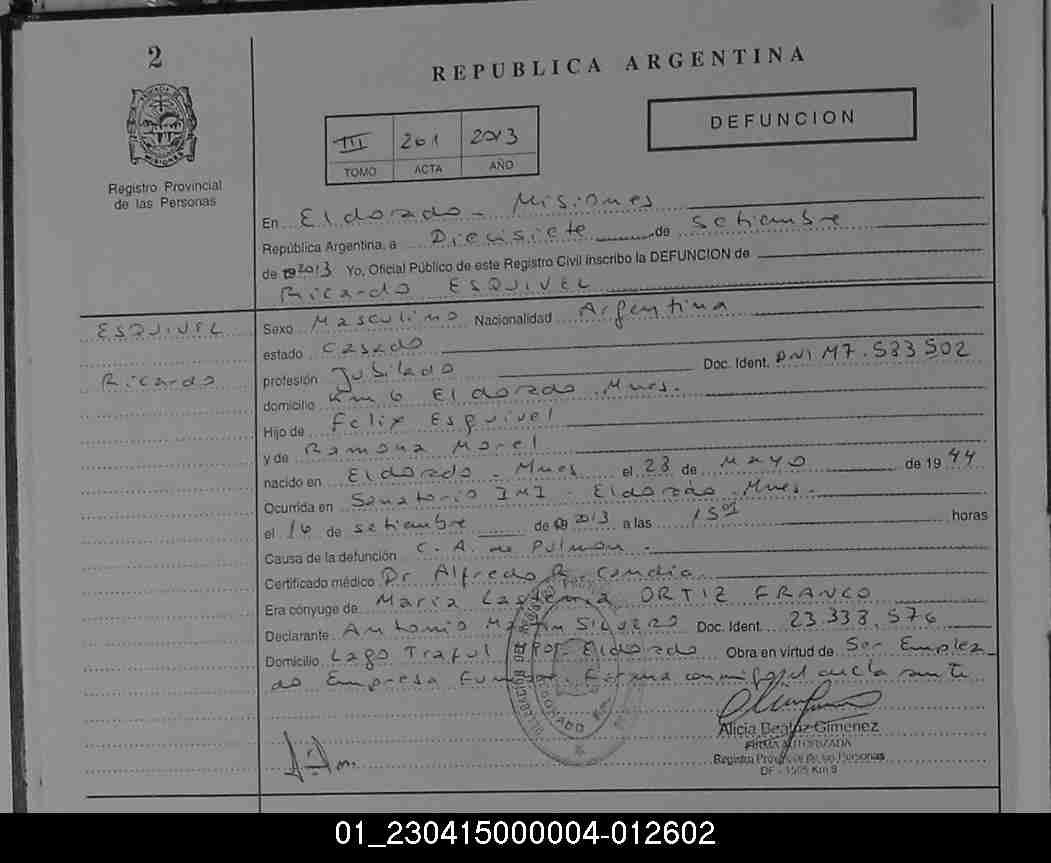 2
REPUBLICA ARGENTINA
DEFUNCION
III 261 2013
TOMO ACTA AÑO
Registro Provincial
de las Personas
En Eldorado - Misiones
República Argentina, a Diecisiete de setiembre
de 2013 Yo, Oficial Público de este Registro Civil inscribo la DEFUNCION de
Ricardo ESQUIVEL
ESQUIVEL
Ricardo
Sexo Masculino Nacionalidad Argentina
estado Casado
profesión Jubilado Doc. Ident. DNI M7.583502
domicilio Km 6 Eldorado. Mnes.
Hijo de Felix Esquivel
y de Ramona Morel
nacido en Eldorado - Mnes el 28 de MAYO de 1944
Ocurrida en Sanatorio IMI - Eldorado. Mnes.
el 16 de setiembre de 2013 a las 15 horas
Causa de la defunción C. A. de Pulmon.
Certificado médico Dr. Alfredo R. Candia
Era cónyuge de Maria ORTIZ FRANCO
Declarante Antonio Martin SILVERO Doc. Ident. 23.338.576
Domicilio Lago Traful Eldorado Obra en virtud de Ser Emplea
do Empresa Firma conmigo el declarante
Alicia Beatriz Gimenez
FIRMA AUTORIZADA
Registro Provincial de las Personas
DF - 1505 Km 9
01_230415000004-012602